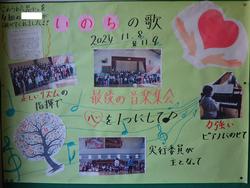 いのちの歌
2024 11.8
11.9
正しいリズムの
指揮で
最後の音楽集会
心を1つにして♪
力強い
ピアノにのせて
実行委員が
主となって